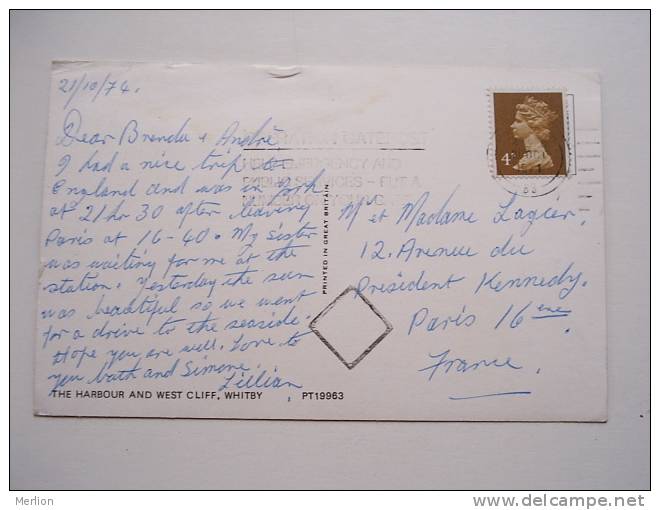 21/10/74.
Dear Brenda + André
I had a nice trip to
England and was in York
at 21 hr 30 after leaving
Paris at 16-40. My sister
was waiting for me at the
station. Yesterday the sun
was beautiful so we went
for a drive to the seaside.
Hope you are well. Love to
you both and Simone.
Lillian
THE HARBOUR AND WEST CLIFF, WHITBY PT19963
PRINTED IN GREAT BRITAIN
HELP EMERGENCY AND
PUBLIC SERVICES - PUT A
NUMBER ON YOUR
4P
M et Madame Lazier,
12. Avenue du
Président Kennedy.
Paris 16ème
France.
Merlion
delcampe.net